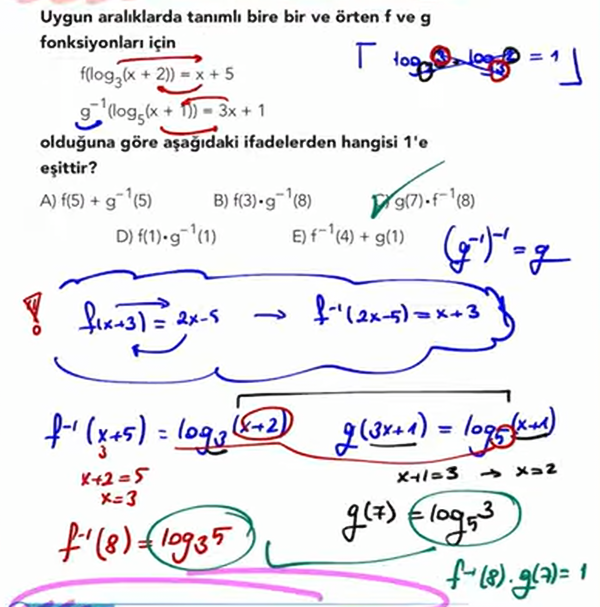 Uygun aralıklarda tanımlı bire bir ve örten f ve g
fonksiyonları için
f(log₃(x + 2)) = x + 5
g⁻¹(log₅(x + 1)) = 3x + 1
olduğuna göre aşağıdaki ifadelerden hangisi 1'e
eşittir?
A) f(5) + g⁻¹(5) B) f(3)·g⁻¹(8) g(7)·f⁻¹(8)
D) f(1)·g⁻¹(1) E) f⁻¹(4) + g(1)
(g⁻¹)⁻¹ = g
f(x+3) = 2x-5 → f⁻¹(2x-5) = x+3
f⁻¹(x+5) = log₃(x+2) g(3x+1) = log₅(x+1)
3
x+2=5
x=3
x+1=3 → x=2
f⁻¹(8) = log₃5
g(7) = log₅3
f⁻¹(8).g(7)=1